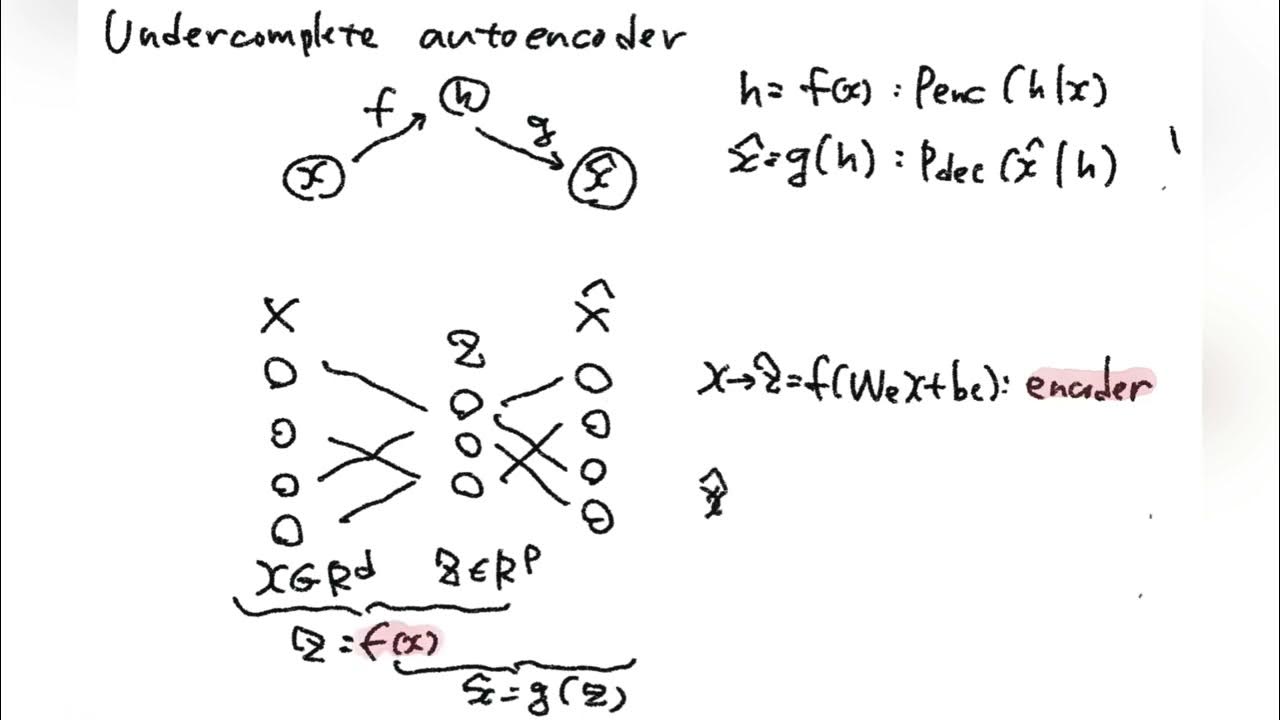 Undercomplete autoencoder
f
h
g
x
x̂
h = f(x) : Penc (h|x)
x̂ = g(h) : Pdec (x̂|h)
X
Z
X̂
X → Z = f(Wex + be) : encoder
x̂
X ∈ Rd
Z ∈ RP
Z = f(x)
x̂ = g(z)